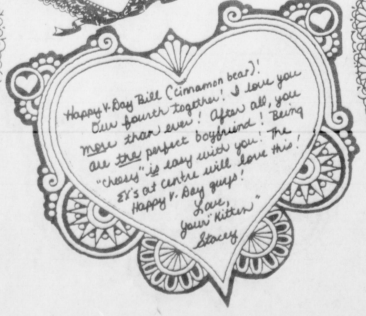 Happy V-Day Bill (cinnamon bear)!
Our fourth together! I love you
more than ever! After all, you
are the perfect boyfriend! Being
"cheesy" is easy with you! The
at centre will love this!
Happy V-Day guys!
Love,
your "Kitten"
Stacey